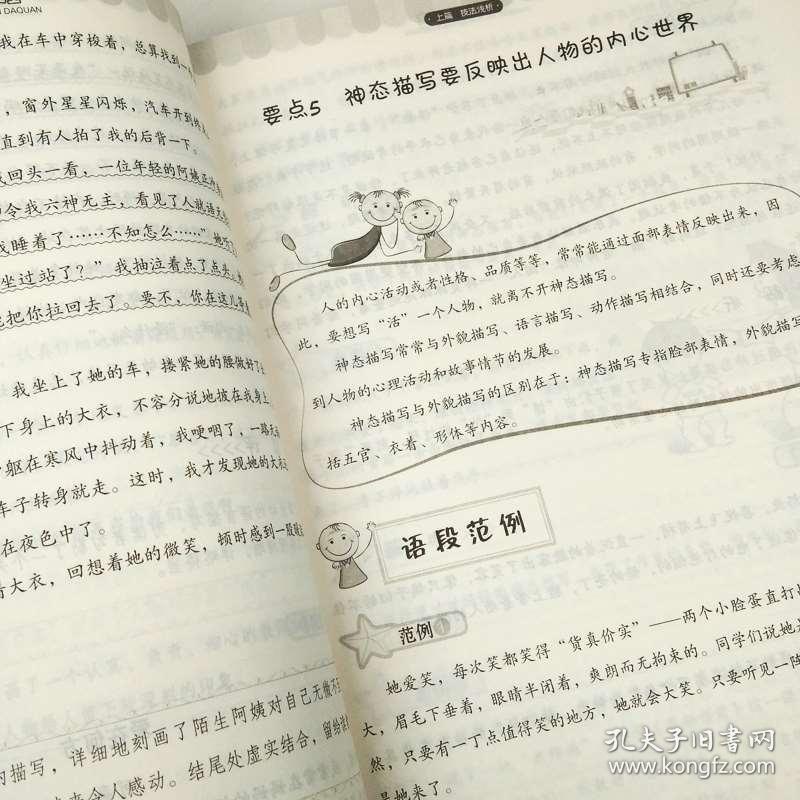 DAQUAN
我在车中穿梭着，总算找到一
，窗外星星闪烁，汽车开到终
直到有人拍了我的后背一下。
回头一看，一位年轻的阿姨正
令我六神无主，看见了人就语无
我睡着了……不知怎么……”她
坐过站了？”我抽泣着点了点头，
把你拉回去了。要不，你在这儿等
我坐上了她的车，搂紧她的腰做好了
下身上的大衣，不容分说地披在我身上
躯在寒风中抖动着，我哽咽了，一路无
车子转身就走。这时，我才发现她的大衣
在夜色中了。
大衣，回想着她的微笑，顿时感到一股暖
的描写，详细地刻画了陌生阿姨对自己无微不至
来令人感动。结尾处虚实结合，留给读
上篇 技法浅析
要点5 神态描写要反映出人物的内心世界
人的内心活动或者性格、品质等等，常常能通过面部表情反映出来，因
此，要想写“活”一个人物，就离不开神态描写。
神态描写常常与外貌描写、语言描写、动作描写相结合，同时还要考虑
到人物的心理活动和故事情节的发展。
神态描写与外貌描写的区别在于：神态描写专指脸部表情，外貌描写
括五官、衣着、形体等内容。
语段范例
范例1
她爱笑，每次笑都笑得“货真价实”——两个小脸蛋直打
大，眉毛下垂着，眼睛半闭着，爽朗而无拘束的。同学们说她
然，只要有一丁点值得笑的地方，她就会大笑。只要听见一阵
是她来了。
孔夫子旧书网
www.kongfz.com